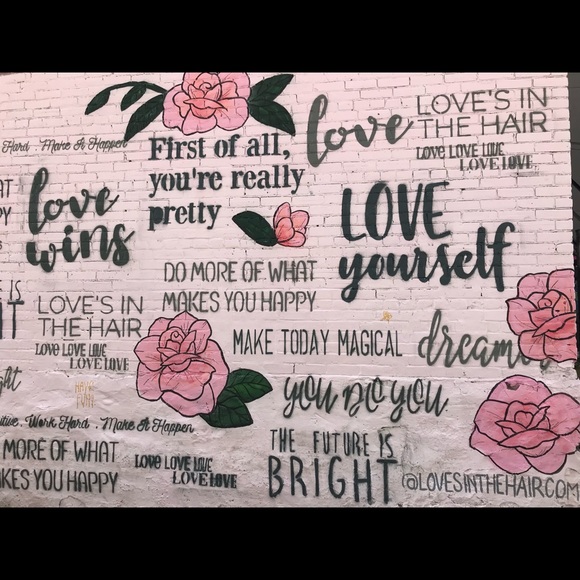 Hard . Make It Happen
First of all,
you're really
pretty
love
LOVE'S IN
THE HAIR
LOVE LOVE LOVE
LOVE LOVE
love
wins
LOVE
yourself
DO MORE OF WHAT
MAKES YOU HAPPY
LOVE'S IN
THE HAIR
LOVE LOVE LOVE
LOVE LOVE
MAKE TODAY MAGICAL
dream
YOU DO YOU.
itive . Work Hard . Make It Happen
MORE OF WHAT
AKES YOU HAPPY
LOVE LOVE LOVE
LOVE LOVE
THE FUTURE IS
BRIGHT
@LOVESINTHEHAIR.COM